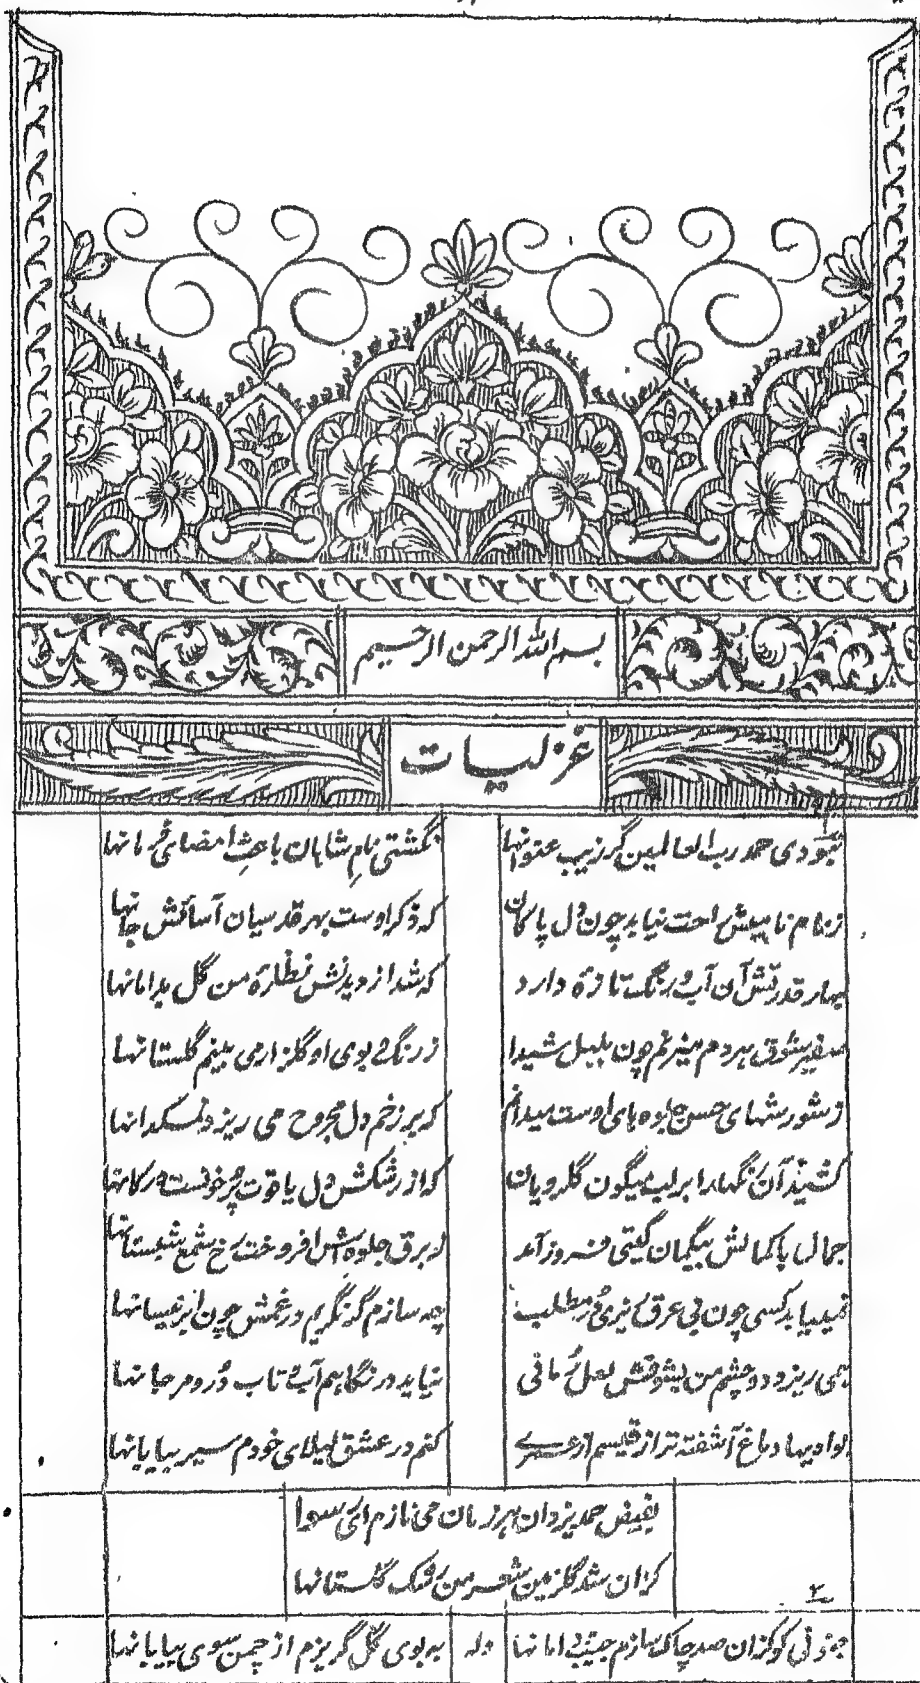 بسم الله الرحمن الرحیم
غزلیات
نبودی حمد رب العالمین گر زیب عنوانها نگشتی نام شاہان باعث امضائ فرمانها
ز نام نامیش راحت نیابد چون دل پاکان که ذکر اوست بهر قدسیان آسائش جانها
بهار قدرتش آن آب و رنگ تازه دارد که شد از دیدنش نظارۂ من گل بدامانها
صفیر شوق هر دم میزنم چون بلبل شیدا ز رنگ و بوی او گلزار می بینم گلستانها
ز شورشهای حسن جلوه های اوست میدانم که بر زخم دل مجروح می ریزد نمکدانها
کشید آن رنگها را بر لب میگون گلرویان که از رشکش دل یاقوت پر خونست در کانها
جمال پاکمالش بیگمان گیتی فروز آمد ز برق جلوه اش افروخت رخ شمع شبستانها
نمییابد کسی چون بی عرق ریزی در مطلب چه سازم گر نگریم در غمش چون ابر نیسانها
همی ریزد دو چشم من بشوقش لعل رمانی نیاید در نگاهم آب و تاب در و مرجانها
بوادیها دماغ آشفته تر از قیسم از عمری کنم در عشق لیلای خودم سیر بیابانها
بفیض حمد یزدان هر زمان می نازم ای سوا
کزان شد گلزمین شعر من رشک گلستانها
۲
جنونی کو کزان صد چاک سازم جیب و دامانها وله به بوی گل گریزم از چمن سوی بیابانها